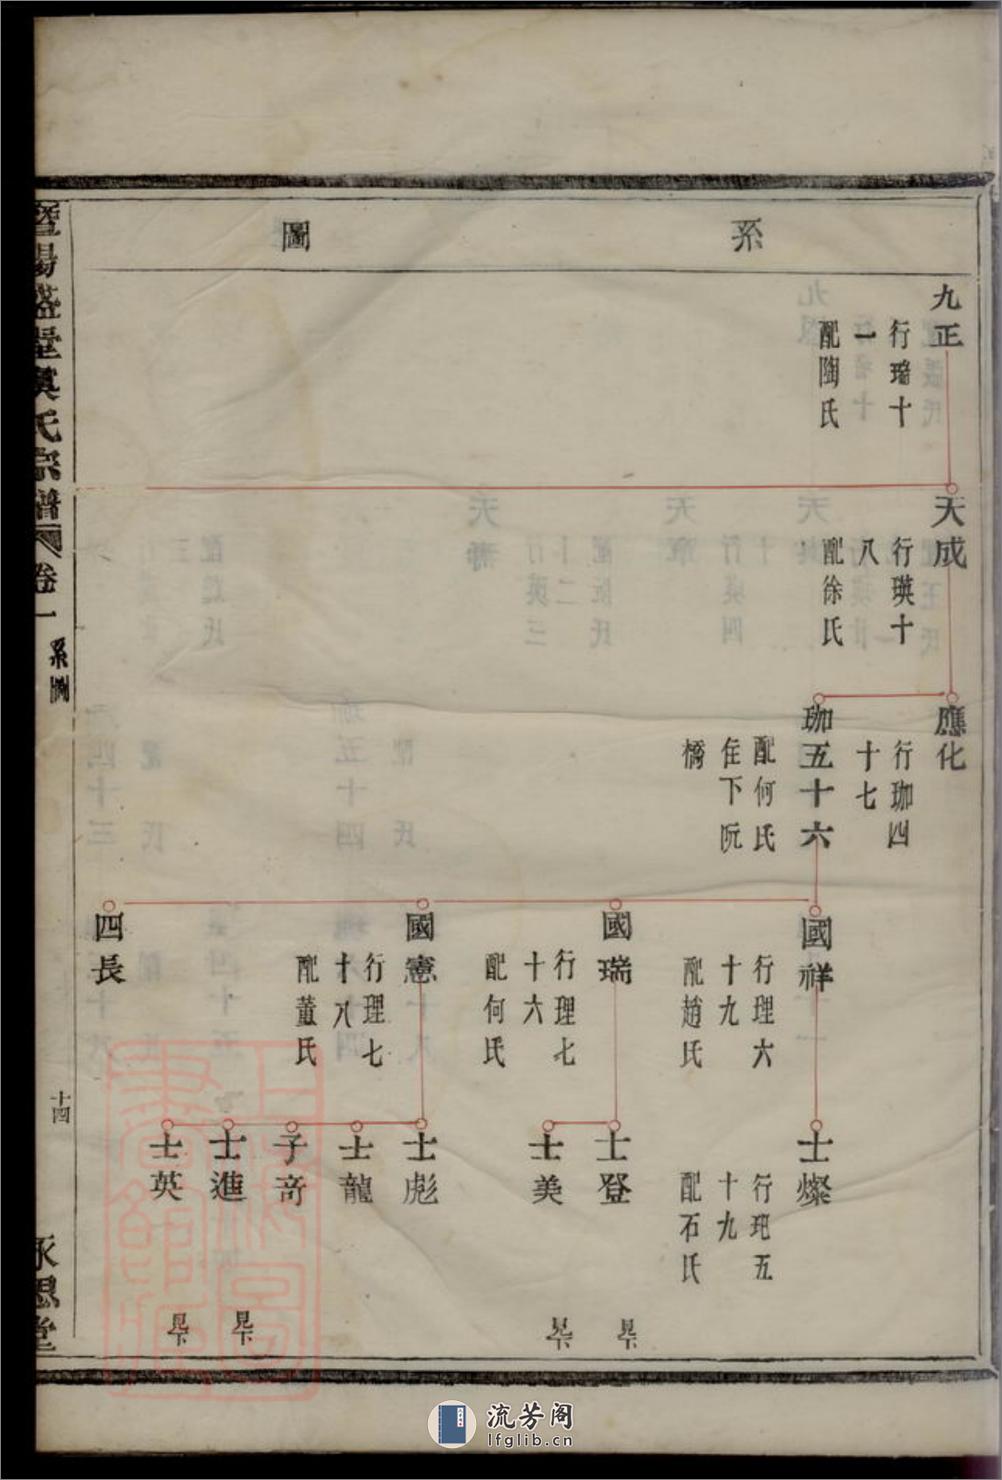 系
圖
九正
行瑞十
一
配陶氏
天成
行瑛十
八
配徐氏
應化
行珈四
十七
珈五十六
配何氏
住下阮
橋
國祥
行理六
十九
配趙氏
國瑞
行理七
十六
配何氏
國憲
行理七
十八
配董氏
四長
士燦
行玭五
十九
配石氏
士登
見下
士美
見下
士彪
士龍
子奇
士進
見下
士英
見下
暨陽盛堂虞氏宗譜
卷一
系圖
十四
永思堂
流芳阁
lfglib.cn